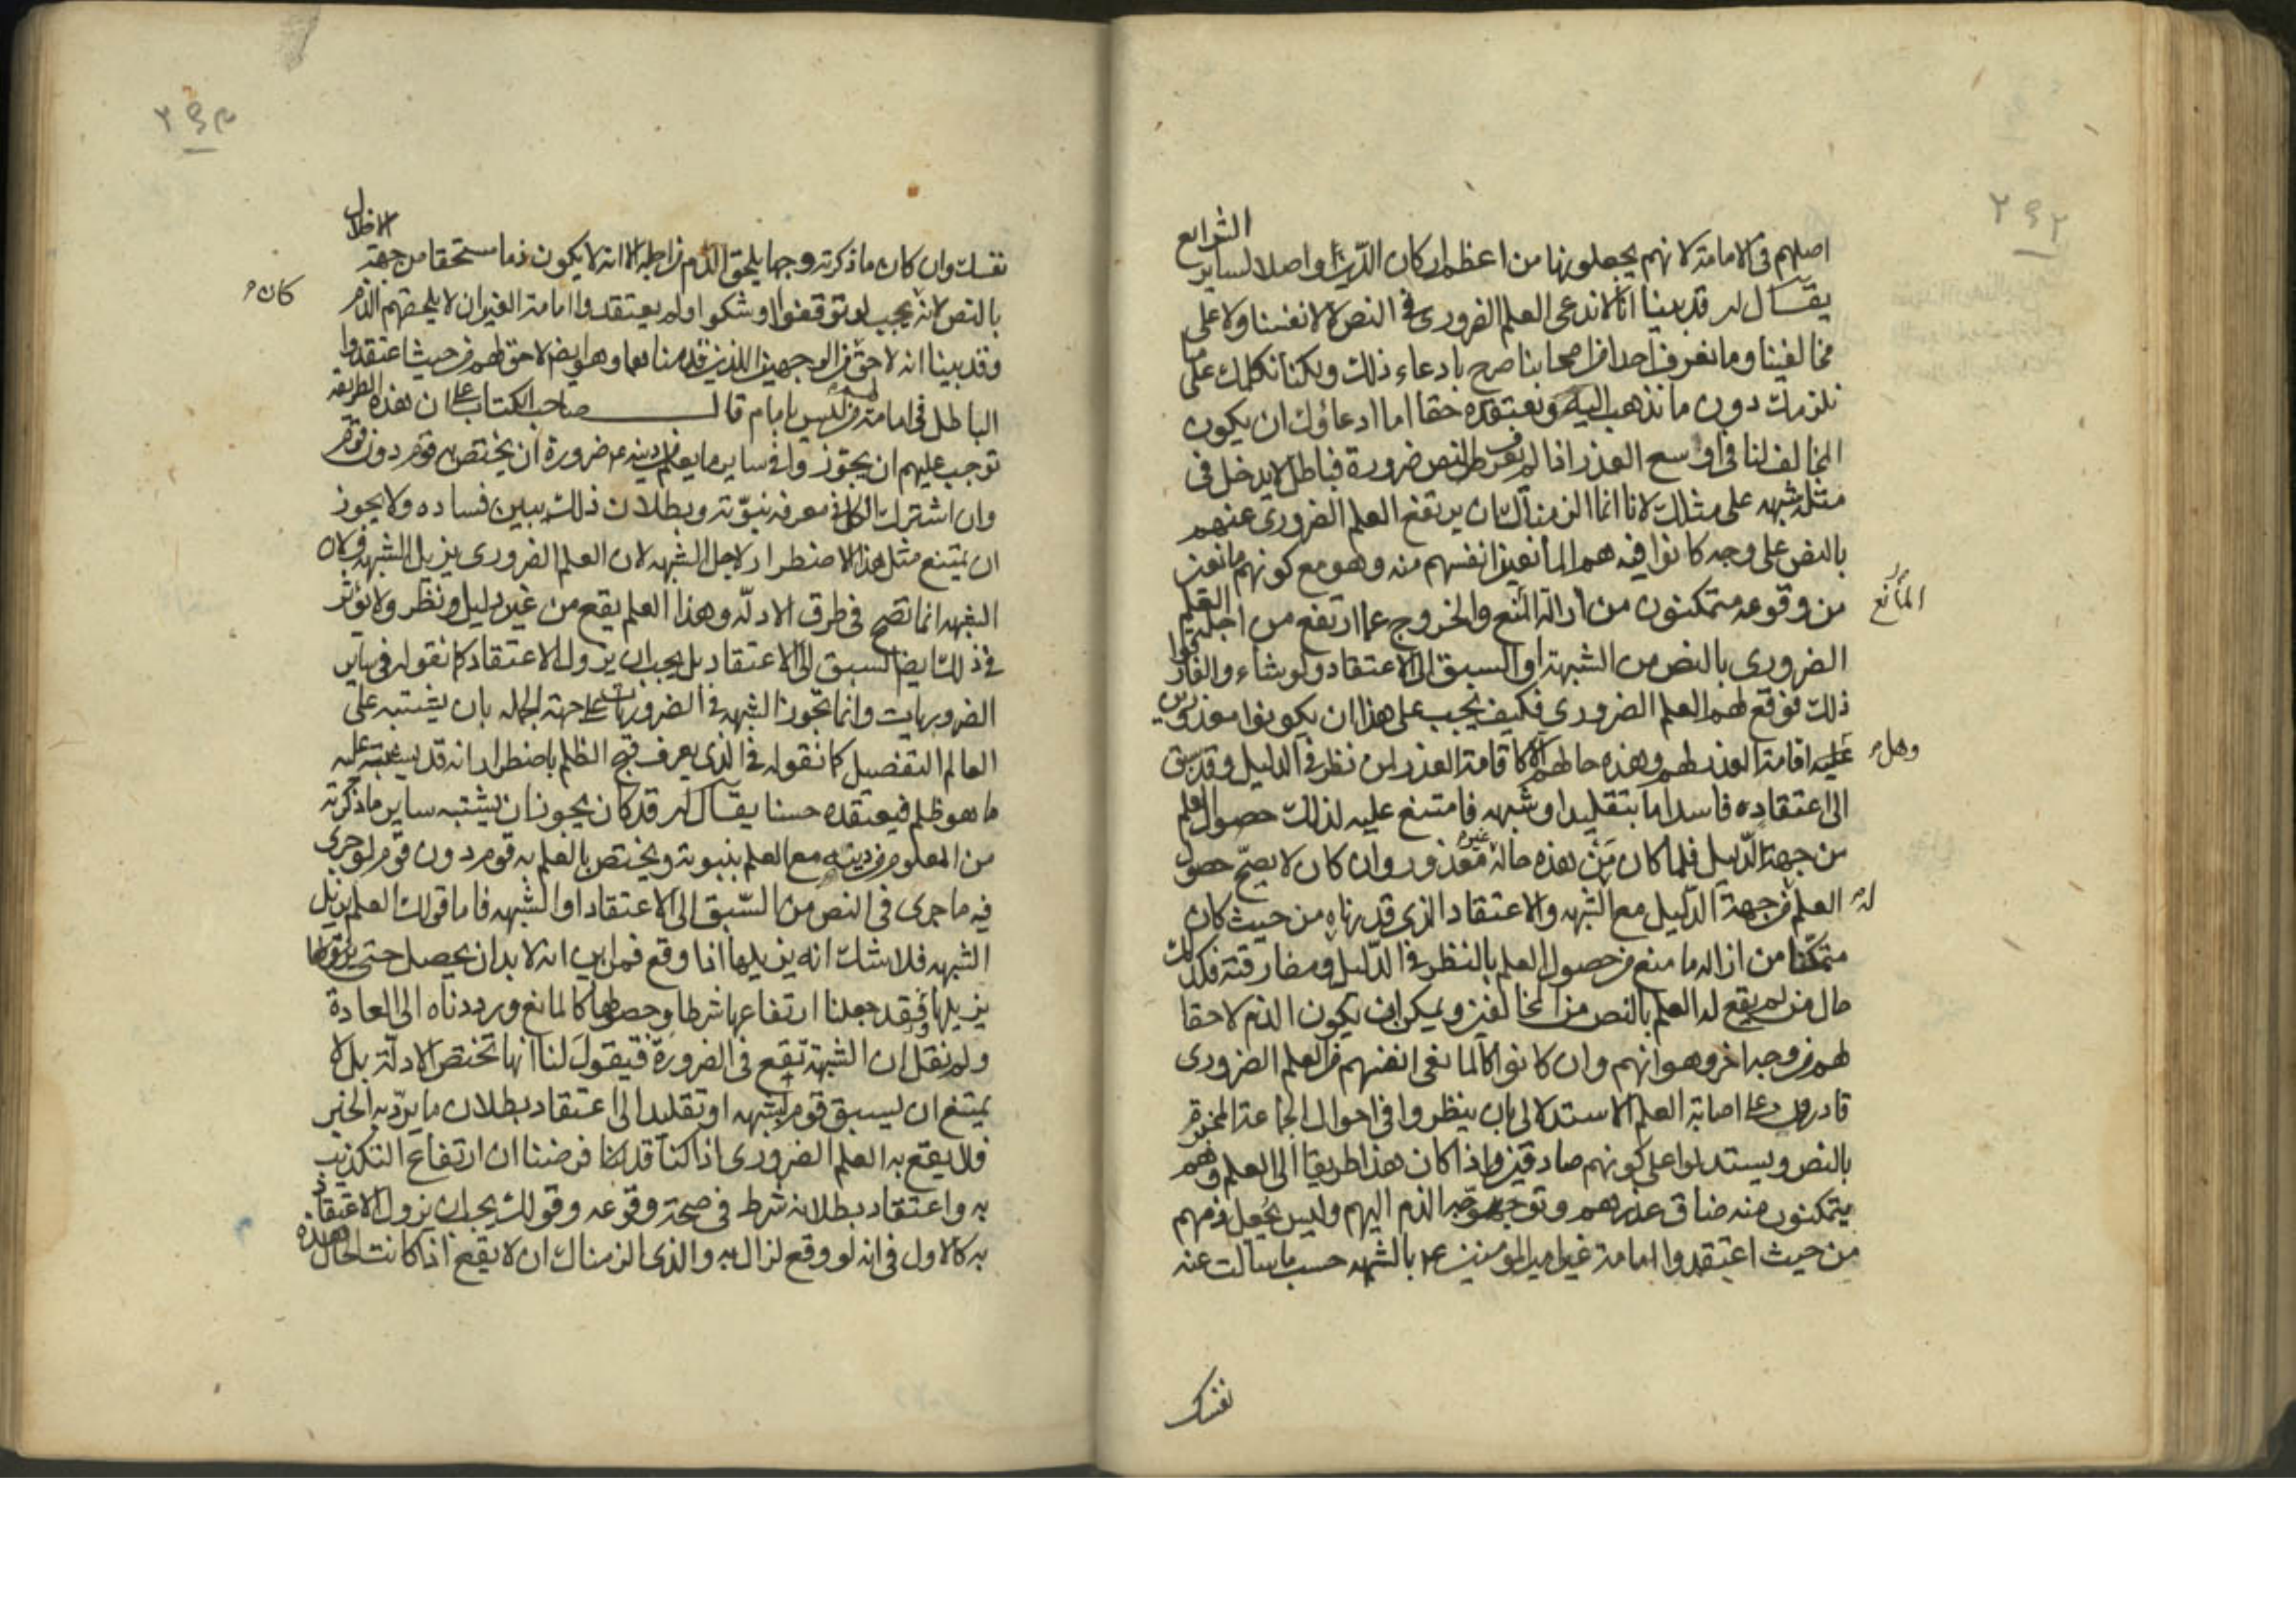 ٢٩٢
اصلهم في الامامة لانهم يجعلونها من اعظم اركان الدّين واصلا لساير الشرايع
يقال له قد بينا انّا لا ندعى العلم الضروري في النص لا لانفسنا ولا على
مخالفينا وما نعرف احدا من اصحابنا صرح بادعاء ذلك ولكنا نكلمك على ما
نلزمك دون ما نذهب اليه ونعتقده حقا اما ادعاؤك ان يكون
المخالف لنا في اوسع العذر اذا لم يعرف النص ضرورة فباطل لا يدخل في
مثله شبهه على مثلك لانا انما الزمناك ان يرتفع العلم الضروري عنهم
بالنص على وجه كانوا فيه هم المانعين انفسهم منه وهو مع كونهم مانعين
من وقوعه متمكنون من ازالة المنع والخروج عما ارتفع من اجله العلم
المانع
الضروري بالنص من الشبهة او السبق الى الاعتقاد ولو شاء والفارقوا
ذلك فوقع لهم العلم الضروري فكيف يجب على هذا ان يكونوا معذورين
وهل
اقامة العذر لهم وهذه حالهم الا كاقامة العذر لمن نظر في الدليل وقد سبق
الى اعتقاده فاسد اما بتقليد او شبهه فامتنع عليه لذلك حصول العلم
من جهة الدّليل فلما كان مَن هذه حاله غير معذور وان كان لا يصحّ حصول
له العلم من جهة الدّليل مع الشبهه والاعتقاد الذي قدرناه من حيث كان
متمكّنا من ازاله ما منع من حصول العلم بالنظر في الدّليل ومفارقته فكذلك
حال من لم يقع له العلم بالنص من المخالفين ويمكن ان يكون الذم لاحقا
لهم من وجه اخر وهو انهم وان كانوا كالمانعى انفسهم من العلم الضروري
قادرون على اصابة العلم الاستدلالى بان ينظروا في احوال الجماعة المخبرة
بالنص ويستدلوا على كونهم صادقين واذا كان هذا طريقا الى العلم وهم
يتمكنون منه ضاق عذرهم وتوجه الذم اليهم وليس نجعل ذمهم
من حيث اعتقدوا امامة غير امير المومنين ع بالشبهه حسب ما سالت عنه
نفسك
٢٩٣
نفسك وان كان ما ذكرته وجها يلحق الذم من اجله الا انه لا يكون ذما مستحقا من جهة الاخلال
بالنص لانه يجب لو توقفوا وشكوا ولم يعتقدوا امامة الغير ان لا يلحقهم الذم
كان
وقد بينا انه لاحق من الوجهين اللذين قدمناهما وهو ايضا لاحق لهم من حيث اعتقدوا
الباطل في امامة من ليس بامام قال صاحب الكتاب على ان هذه الطريقة
توجب عليهم ان يجوّزوا في ساير ما يعلم من دينه ع ضرورة ان يختص به قوم دون قوم
وان اشترك الكل في معرفة نبوّته وبطلان ذلك يبين فساده ولا يجوز
ان يمتنع مثل هذا الاضطرار لاجل الشبهه لان العلم الضروري يزيل الشبهه ولان
الشبهه انما تصح في طرق الادلّه وهذا العلم يقع من غير دليل ونظر ولا يؤثر
في ذلك ايضا السبق الى الاعتقاد بل يجب ان يزول الاعتقاد كما نقوله في ساير
الضروريات وانما تجّوز الشبهه في الضروريات على جهة الجمله بان يشتبه على
العالم التفصيل كما نقوله في الذي يعرف قبح الظلم باضطرار انه قد يشتبه عليه
ما هو ظلم فيعتقده حسنا يقال له قد كان يجوز ان يشتبه ساير ما ذكرته
من المعلوم من دينه مع العلم بنبوته ويختص بالعلم به قوم دون قوم لو جرى
فيه ما جرى في النص من السّبق الى الاعتقاد او الشبهه فاما قولك العلم يزيل
الشبهه فلا شك انه يزيلها اذا وقع فمن اين انه لا بد ان يحصل حتى
يزيلها وقد جعلنا ارتفاعها شرطا وحصولها كالمانع ورددناه الى العادة
ولم نقل ان الشبهة تقع في الضرورة فيقول لنا انها تختص الادلّة بل لا
يمتنع ان يسبق قوم لشبهه او تقليد الى اعتقاد بطلان ما يردّ به الخبر
فلا يقع به العلم الضروري اذا كنا قد فرضنا ان ارتفاع التكذيب
به واعتقاد بطلانه شرط في صحة وقوعه وقولك يجب ان يزول الاعتقاد
به كالاول في انه لو وقع لزال به والذي الزمناك ان لا يقع اذا كانت الحال هذه